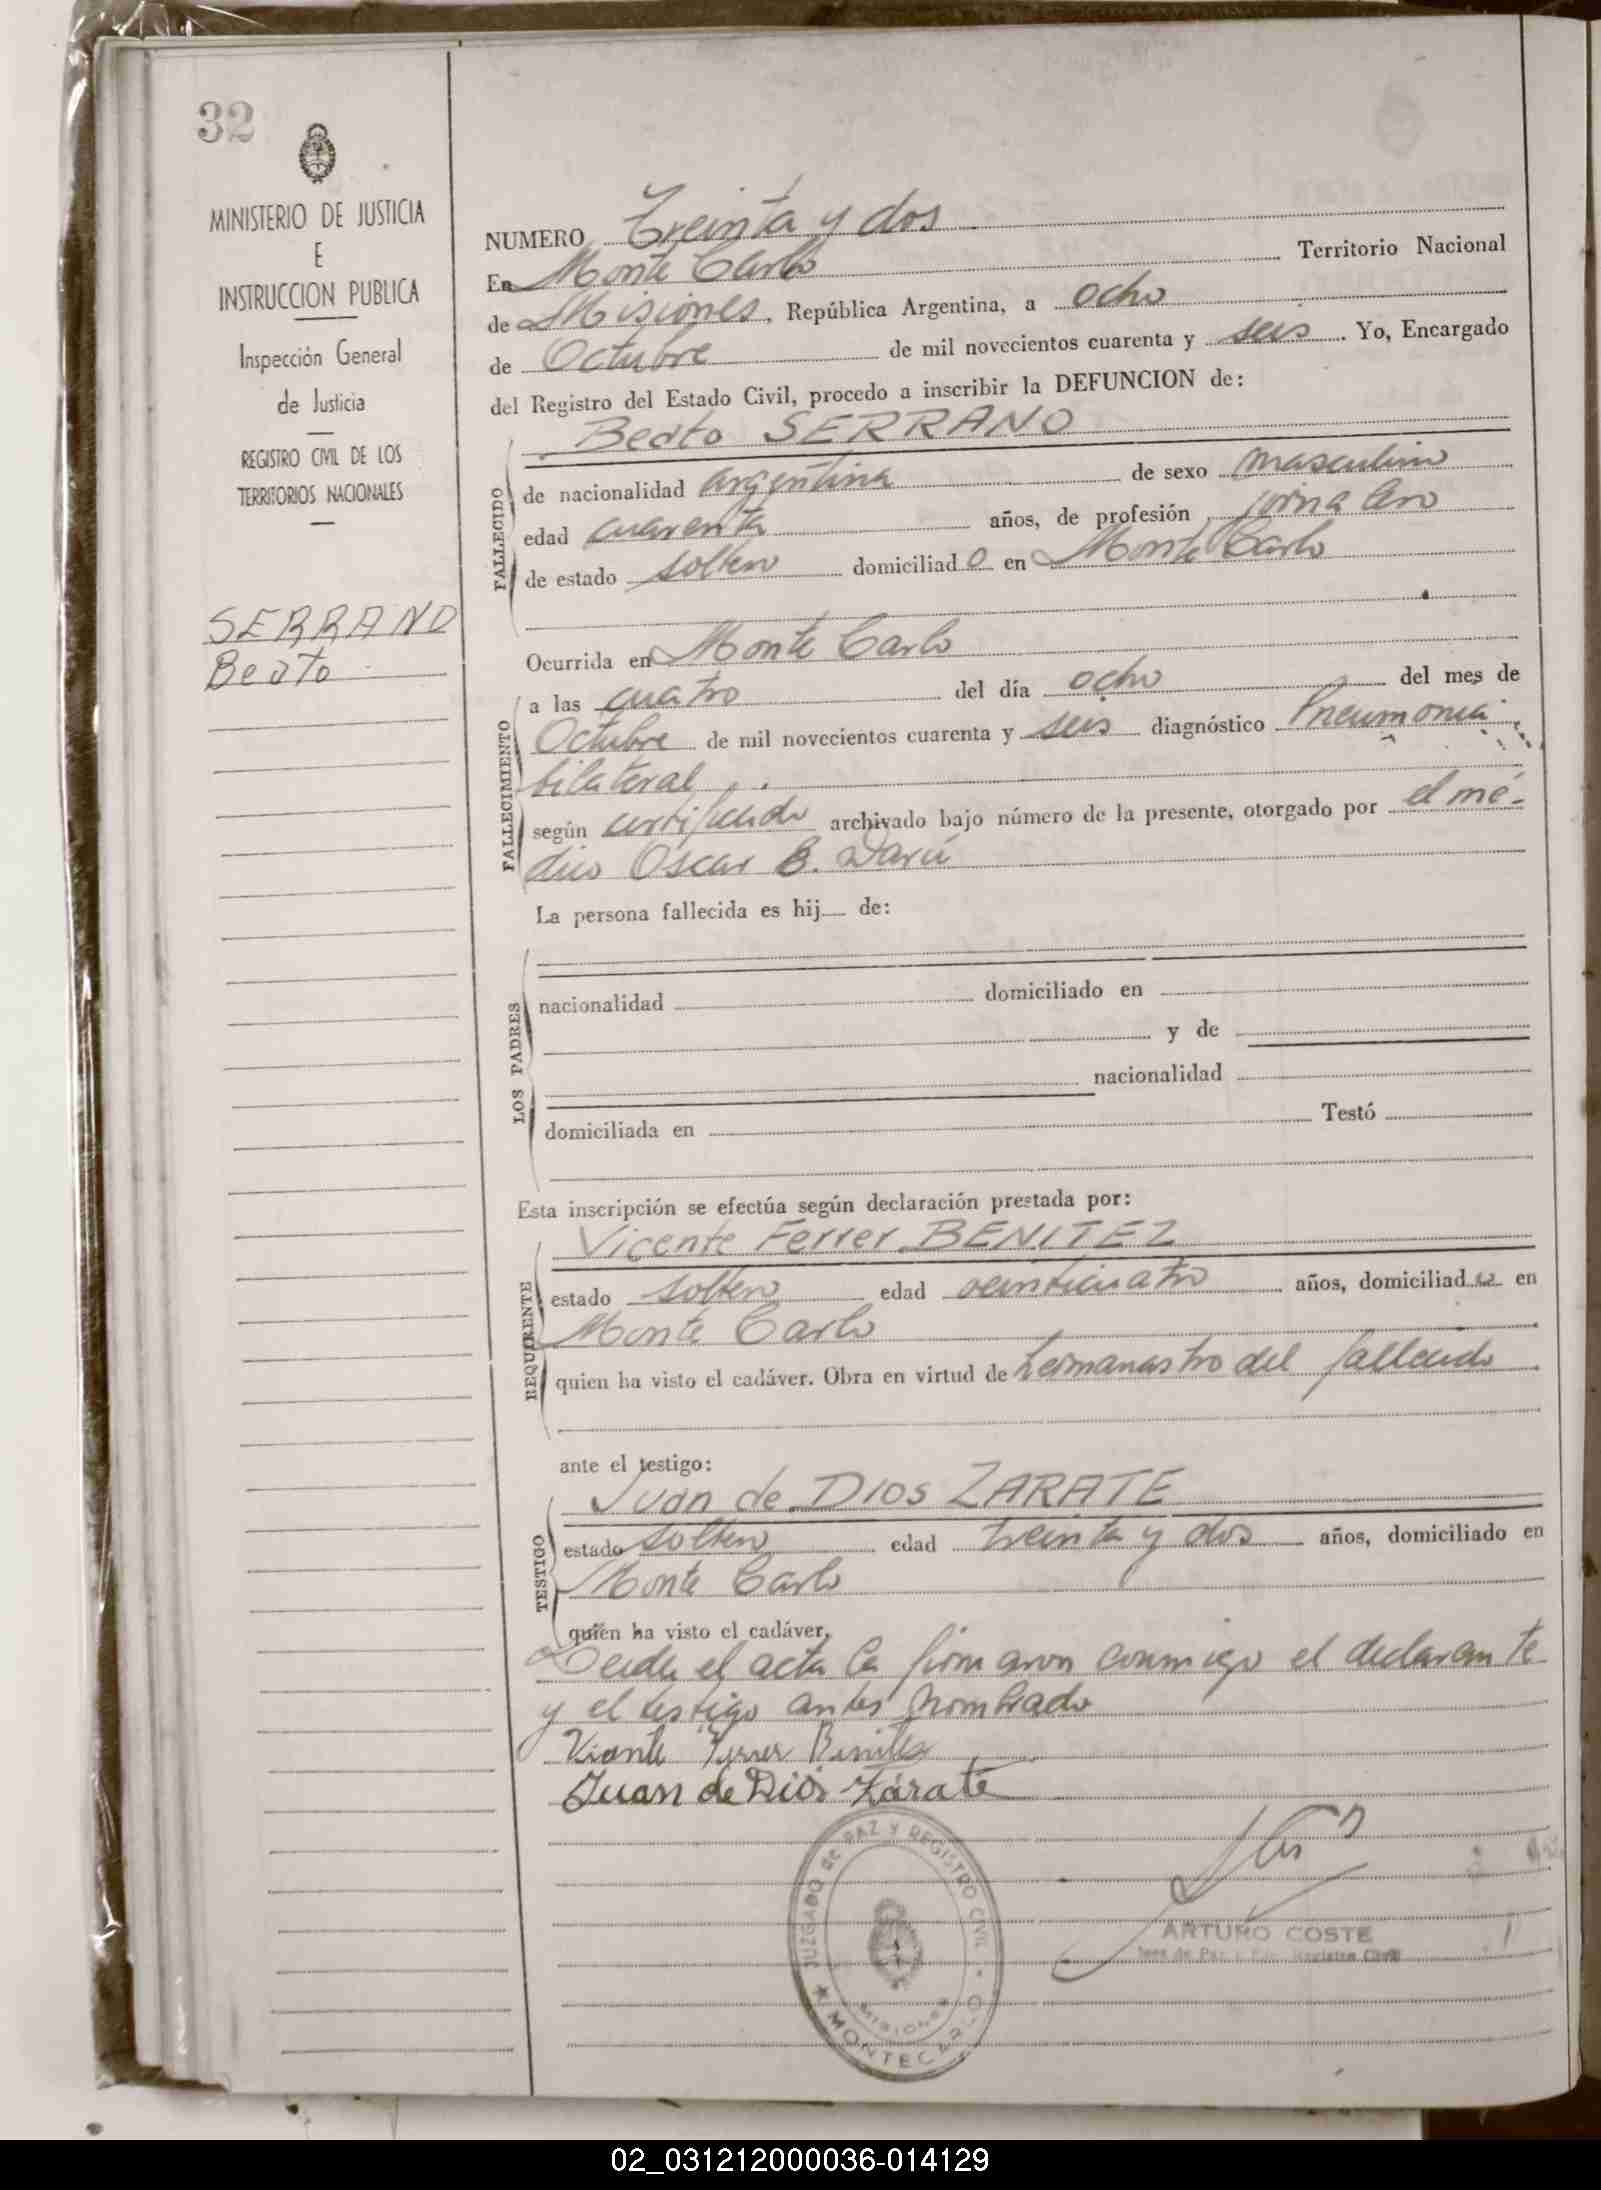 32
MINISTERIO DE JUSTICIA
E
INSTRUCCION PUBLICA
Inspección General
de Justicia
REGISTRO CIVIL DE LOS
TERRITORIOS NACIONALES
SERRANO
Beato
NUMERO Treinta y dos
En Monte Carlo Territorio Nacional
de Misiones, República Argentina, a ocho
de Octubre de mil novecientos cuarenta y seis. Yo, Encargado
del Registro del Estado Civil, procedo a inscribir la DEFUNCION de:
Beato SERRANO
FALLECIDO
de nacionalidad argentina de sexo masculino
edad cuarenta años, de profesión jornalero
de estado soltero domiciliado en Monte Carlo
Ocurrida en Monte Carlo
FALLECIMIENTO
a las cuatro del día ocho del mes de
Octubre de mil novecientos cuarenta y seis diagnóstico Pneumonia
bilateral
según certificado archivado bajo número de la presente, otorgado por el mé-
dico Oscar B. Darú
La persona fallecida es hij de:
LOS PADRES
nacionalidad domiciliado en
y de
nacionalidad
domiciliada en Testó
Esta inscripción se efectúa según declaración prestada por:
Vicente Ferrer BENITEZ
REQUIRENTE
estado soltero edad veinticuatro años, domiciliado en
Monte Carlo
quien ha visto el cadáver. Obra en virtud de hermanastro del fallecido
ante el testigo:
Juan de DIOS ZARATE
TESTIGO
estado soltero edad treinta y dos años, domiciliado en
Monte Carlo
quien ha visto el cadáver.
Leida el acta la firmaron conmigo el declarante
y el testigo antes nombrado
Vicente Ferrer Benitez
Juan de Dios Zárate
JUZGADO de PAZ Y REGISTRO CIVIL
MISIONES
MONTECARLO
ARTURO COSTE
Juez de Paz y Enc. Registro Civil
02_031212000036-014129